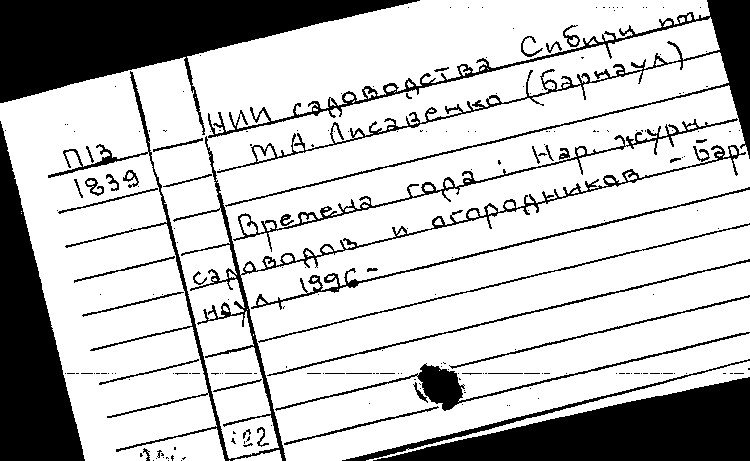 НИИ садоводства Сибири им.
П13
М.А. Лисавенко (Барнаул)
1839
Времена года : Нар. журн.
садоводов и огородников. - Бар-
наул, 1996-
122